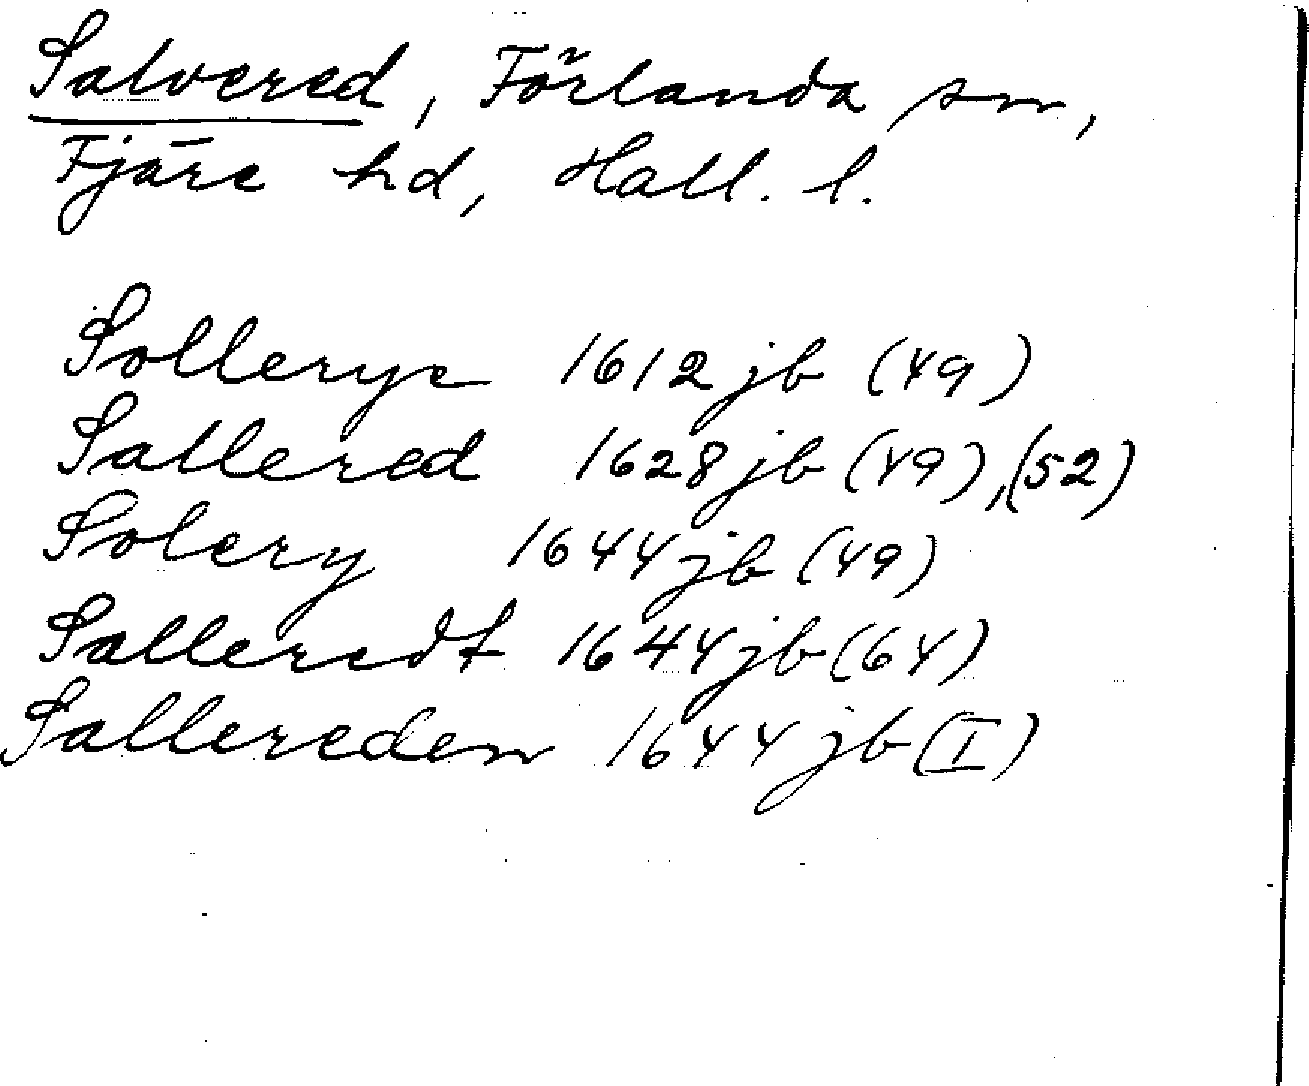 Salvered, Förlanda sn,
Fjäre hd, Hall. l.
Sollerye 1612 jb (49)
Sallered 1628 jb (49), (52)
Solery 1644 jb (49)
Salleredt 1644 jb (64)
Sallereden 1644 jb (I)